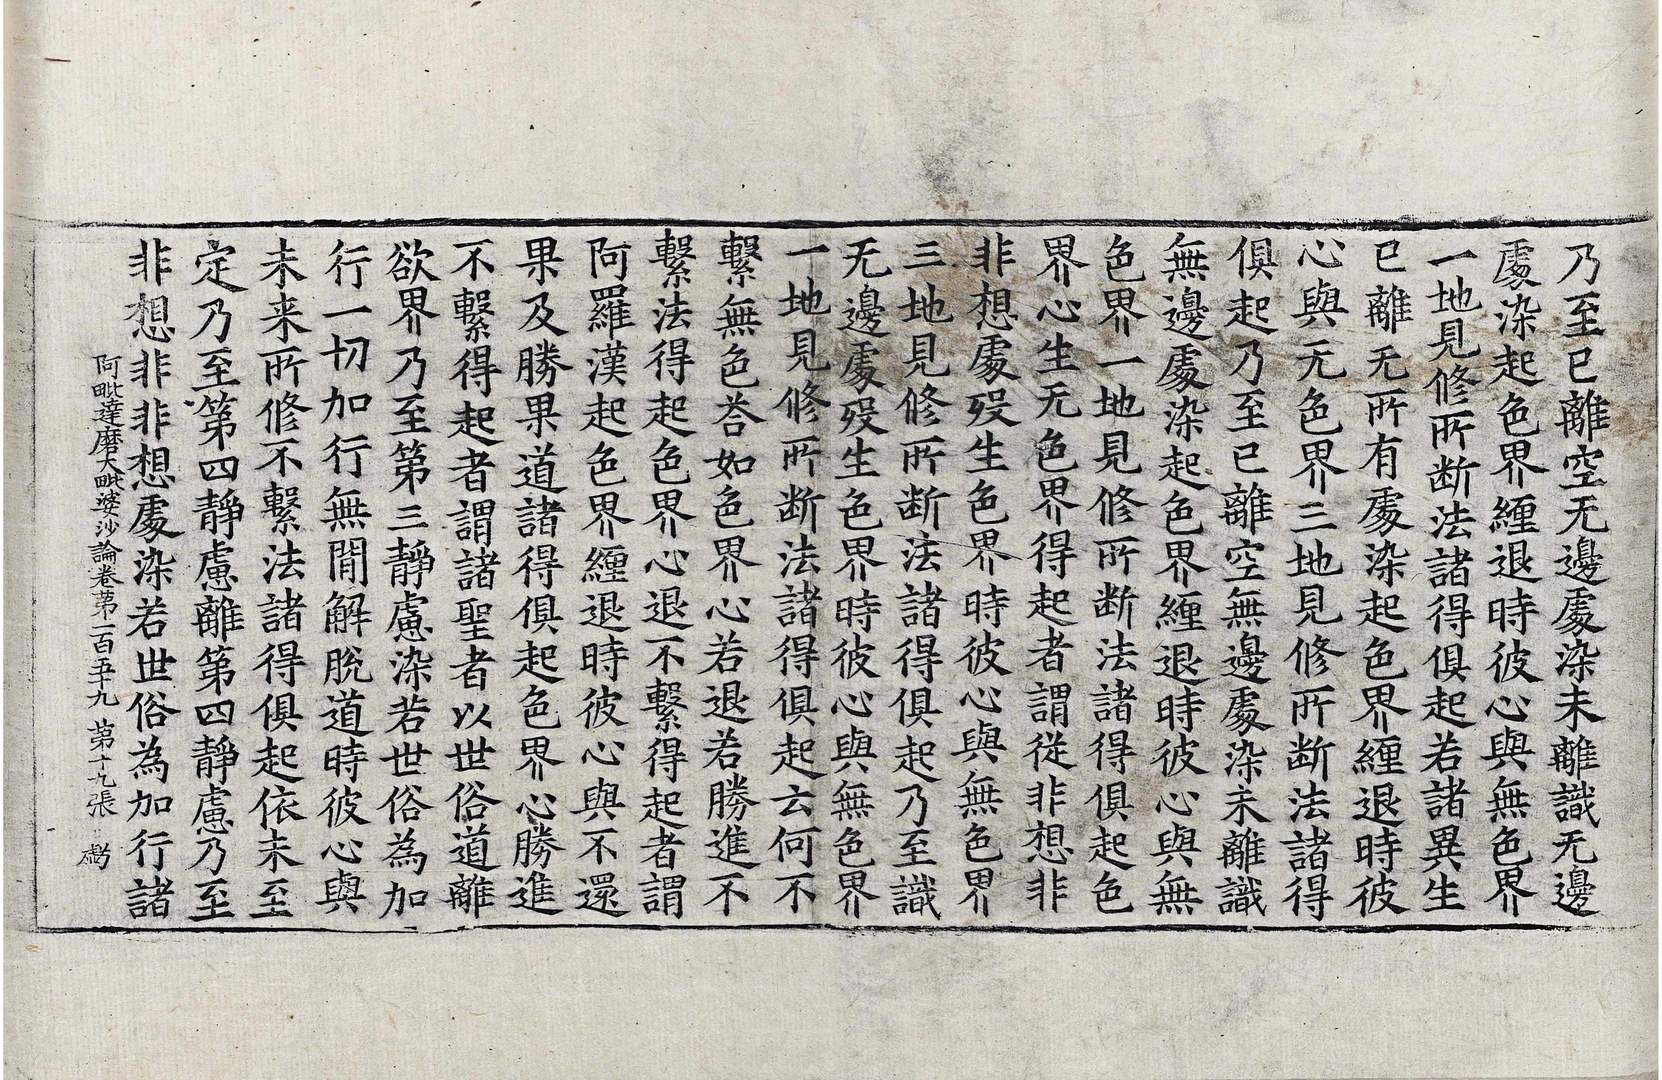 乃至已離空无邊處染未離識无邊
處染起色界纏退時彼心與無色界
一地見修所断法諸得俱起若諸異生
已離无所有處染起色界纏退時彼
心與无色界三地見修所断法諸得
俱起乃至已離空無邊處染未離識
無邊處染起色界纏退時彼心與無
色界一地見修所断法諸得俱起色
界心生无色界得起者謂從非想非
非想處歿生色界時彼心與無色界
三地見修所断法諸得俱起乃至識
无邊處歿生色界時彼心與無色界
一地見修所断法諸得俱起云何不
繫無色荅如色界心若退若勝進不
繫法得起色界心退不繫得起者謂
阿羅漢起色界纏退時彼心與不還
果及勝果道諸得俱起色界心勝進
不繫得起者謂諸聖者以世俗道離
欲界乃至第三靜慮染若世俗為加
行一切加行無間解脫道時彼心與
未来所修不繫法諸得俱起依未至
定乃至第四靜慮離第四靜慮乃至
非想非非想處染若世俗為加行諸
阿毗達磨大毗婆沙論卷苐一百五十九 苐十九張